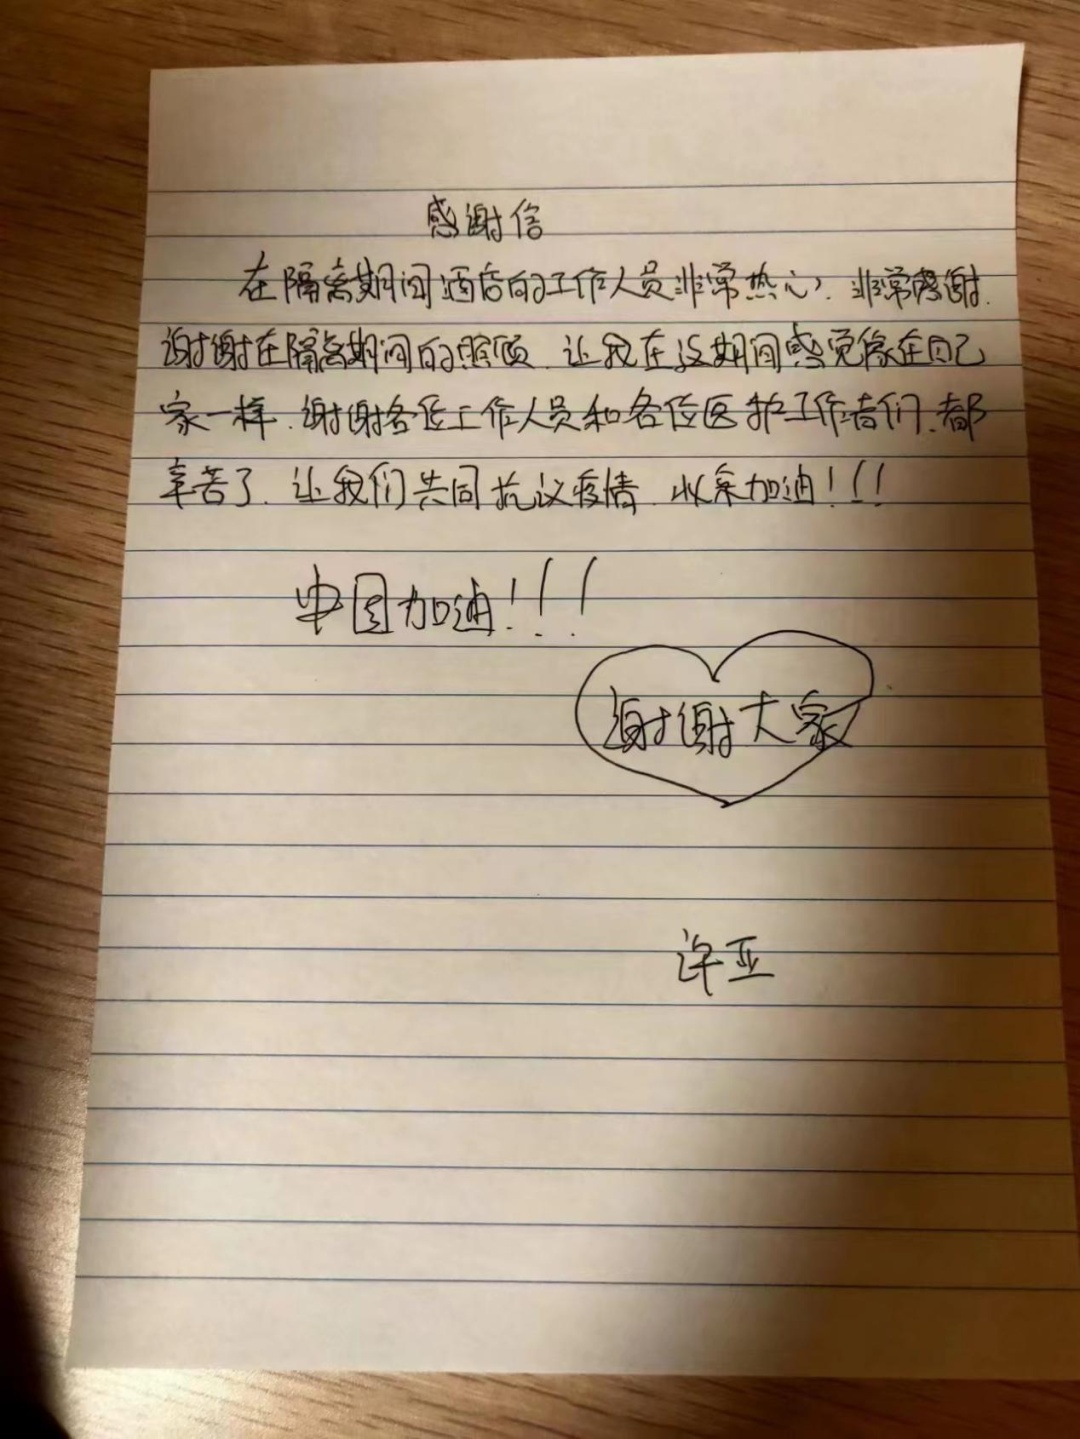 感谢信
在隔离期间酒店的工作人员非常热心. 非常感谢.
谢谢在隔离期间的照顾. 让我在这期间感觉像在自己
家一样. 谢谢各位工作人员和各位医护工作者们. 都
辛苦了. 让我们共同抗议疫情. 加油!!!
中国加油!!!
谢谢大家
许亚